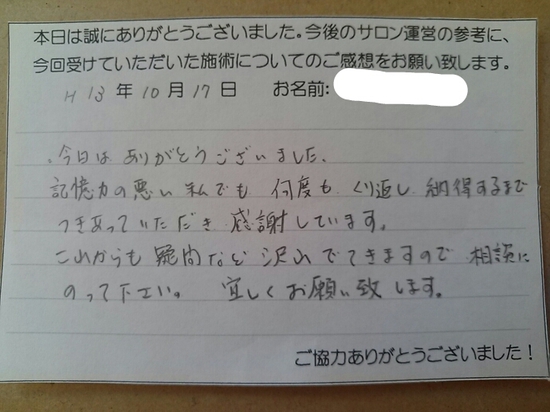 本日は誠にありがとうございました。今後のサロン運営の参考に、
今回受けていただいた施術についてのご感想をお願い致します。
H 13 年 10 月 17 日 お名前:
今日は ありがとうございました、
記憶力の悪い 私でも 何度も くり返し 納得するまで
つきあっていただき 感謝しています。
これからも 疑問など 沢山 でてきますので 相談に
のって下さい。 宜しくお願い致します。
ご協力ありがとうございました！